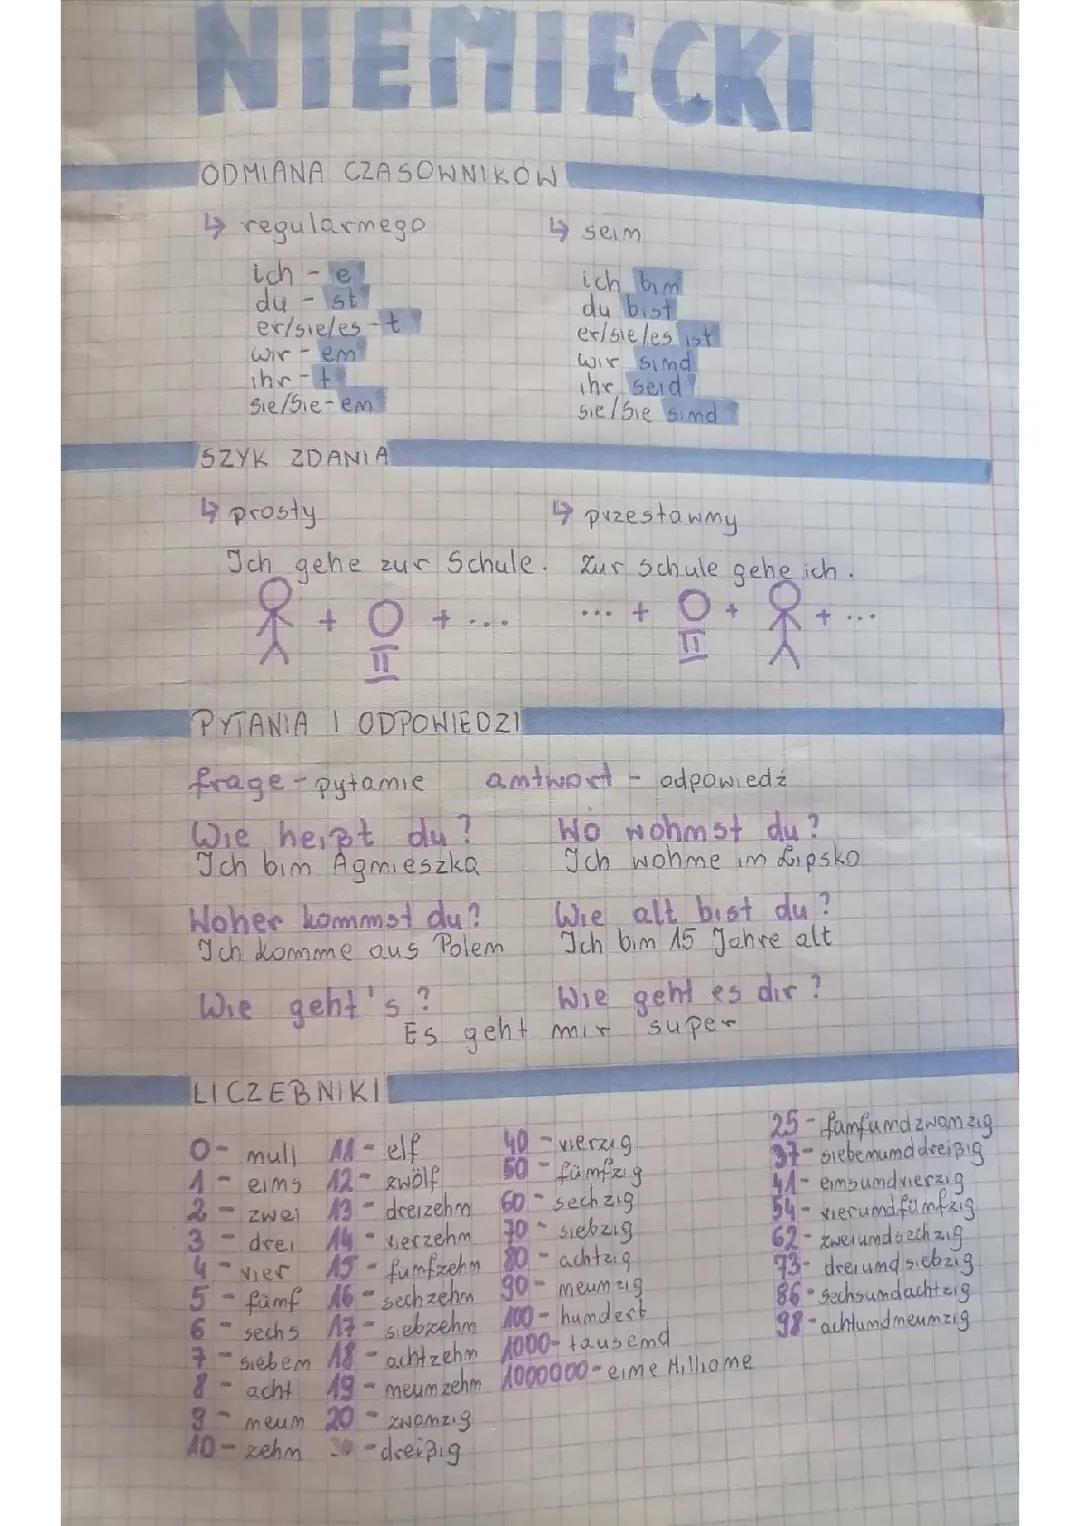 NIEMIECKI
ODMIANA CZASOWNIKÓW
↳ regularnego
ich - e
du - st
er/sie/es - t
wir - en
ihr - t
sie/Sie - en
↳ sein
ich bin
du bist
er/sie/es ist
wir sind
ihr seid
sie/Sie sind
SZYK ZDANIA
↳ prosty
Ich gehe zur Schule.
+ II + ...
↳ przestawny
Zur Schule gehe ich.
... + II + + ...
PYTANIA I ODPOWIEDZI
frage - pytanie antwort - odpowiedź
Wie heißt du? Wo wohnst du?
Ich bin Agnieszka Ich wohne in Lipsko
Woher kommst du? Wie alt bist du?
Ich komme aus Polen Ich bin 15 Jahre alt
Wie geht's? Wie geht es dir?
Es geht mir super
LICZEBNIKI
0 - null
1 - eins
2 - zwei
3 - drei
4 - vier
5 - fünf
6 - sechs
7 - sieben
8 - acht
9 - neun
10 - zehn
11 - elf
12 - zwölf
13 - dreizehn
14 - vierzehn
15 - funfzehn
16 - sechzehn
17 - siebzehn
18 - achtzehn
19 - neunzehn
20 - zwanzig
30 - dreißig
40 - vierzig
50 - fünfzig
60 - sechzig
70 - siebzig
80 - achtzig
90 - neunzig
100 - hundert
1000 - tausend
1000000 - eine Millione
25 - fanfundzwanzig
37 - siebenunddreißig
41 - einsundvierzig
54 - vierundfünfzig
62 - zweiundsechzig
73 - dreiundsiebzig
86 - sechsundachtzig
98 - achtundneunzig